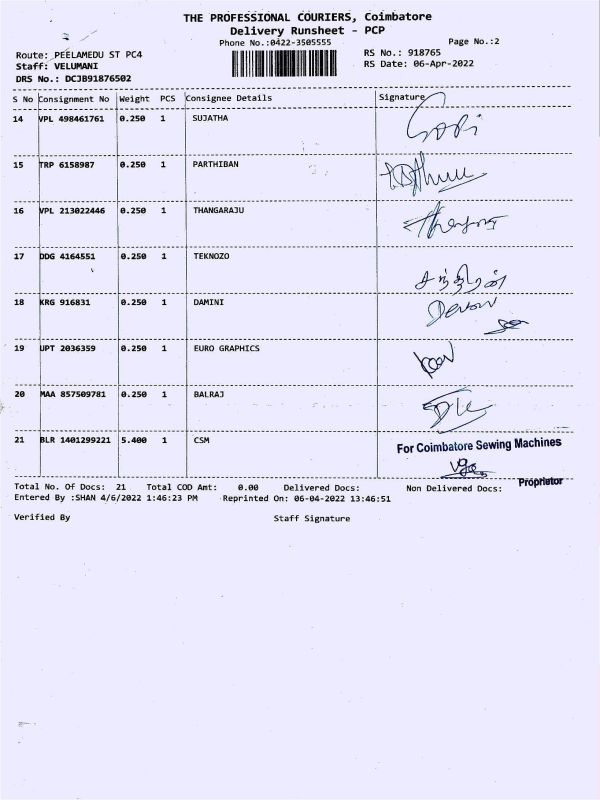 THE PROFESSIONAL COURIERS, Coimbatore
Delivery Runsheet - PCP
Phone No.:0422-3505555 Page No.:2
Route: PEELAMEDU ST PC4 RS No.: 918765
Staff: VELUMANI RS Date: 06-Apr-2022
DRS No.: DCJB91876502
S No Consignment No Weight PCS Consignee Details Signature
14 VPL 498461761 0.250 1 SUJATHA
15 TRP 6158987 0.250 1 PARTHIBAN
16 VPL 213022446 0.250 1 THANGARAJU
17 DDG 4164551 0.250 1 TEKNOZO
18 KRG 916831 0.250 1 DAMINI
19 UPT 2036359 0.250 1 EURO GRAPHICS
20 MAA 857509781 0.250 1 BALRAJ
21 BLR 1401299221 5.400 1 CSM For Coimbatore Sewing Machines
Proprietor
Total No. Of Docs: 21 Total COD Amt: 0.00 Delivered Docs: Non Delivered Docs:
Entered By :SHAN 4/6/2022 1:46:23 PM Reprinted On: 06-04-2022 13:46:51
Verified By Staff Signature